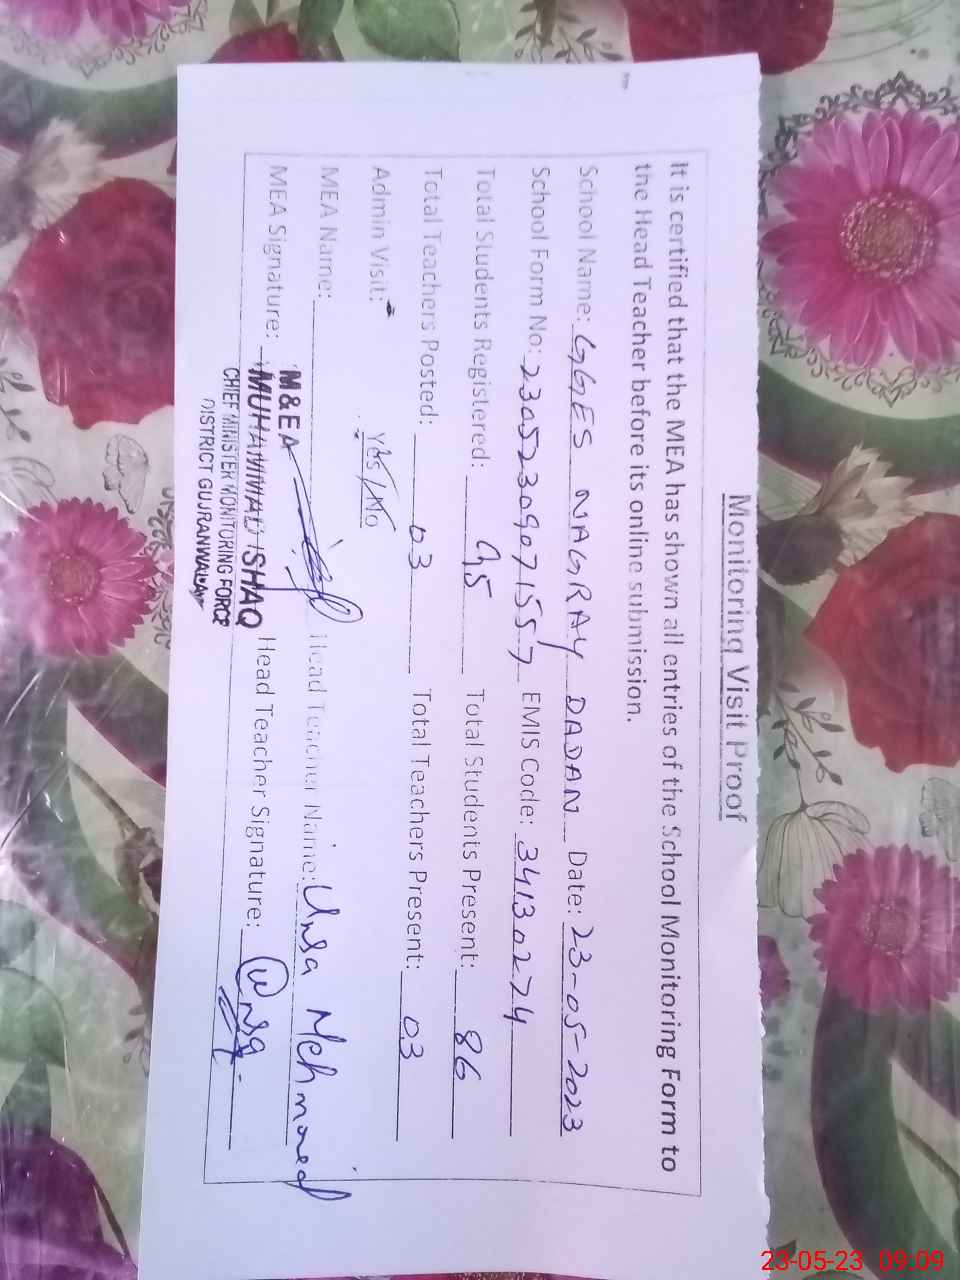 Monitoring Visit Proof
It is certified that the MEA has shown all entries of the School Monitoring Form to
the Head Teacher before its online submission.
School Name: GGES NAGRAY DADAN Date: 23-05-2023
School Form No: 23052309071557 EMIS Code: 34130274
Total Students Registered: 95 Total Students Present: 86
Total Teachers Posted: 03 Total Teachers Present: 03
Admin Visit: Yes / No
MEA Name: Head Teacher Name: Unsa Mehmood
MEA Signature: Head Teacher Signature: Unsa
M&EA
MUHAMMAD ISHAQ
CHIEF MINISTER MONITORING FORCE
DISTRICT GUJRANWALA
23-05-23 09:09